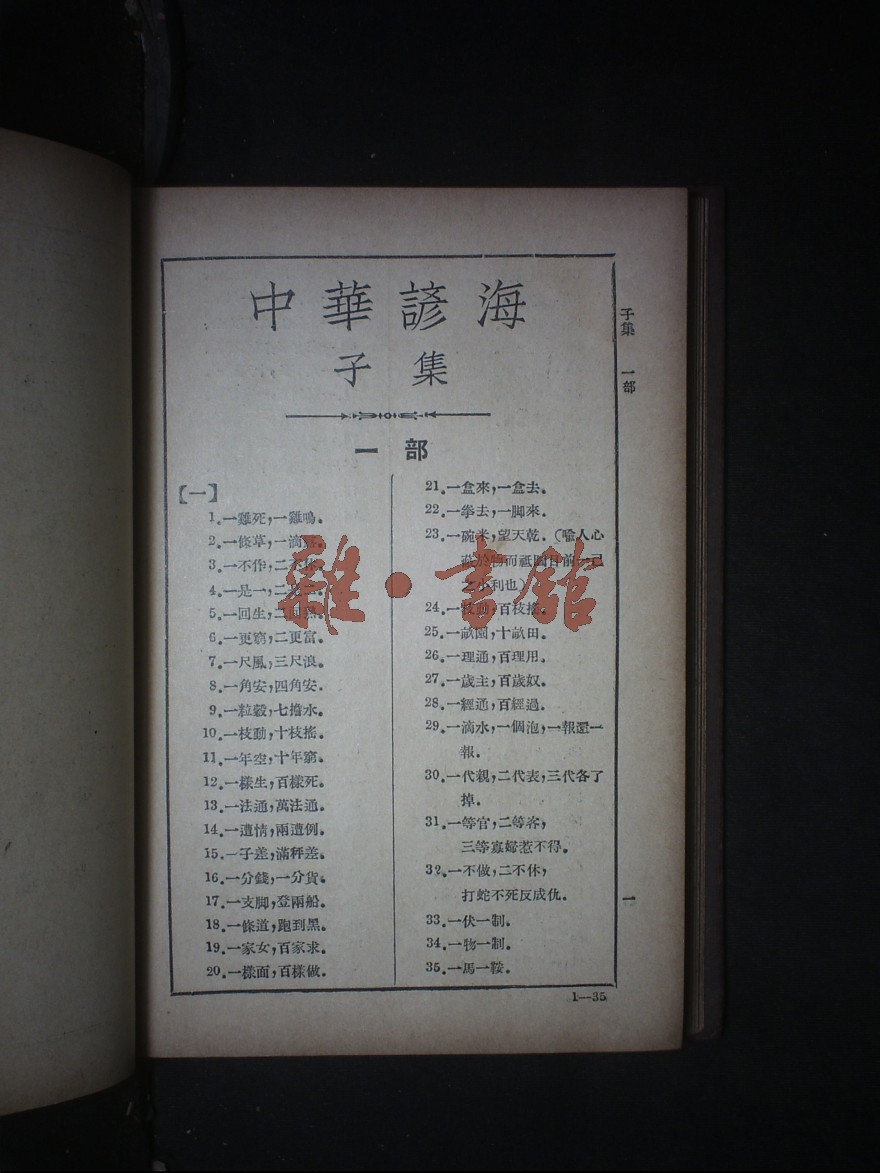 中華諺海
子集
一部
【一】
1. 一雞死，一雞鳴。
2. 一條草，一滴露。
3. 一不作，二不休。
4. 一是一，二是二。
5. 一回生，二回熟。
6. 一更窮，二更富。
7. 一尺風，三尺浪。
8. 一角安，四角安。
9. 一粒穀，七擔水。
10. 一枝動，十枝搖。
11. 一年空，十年窮。
12. 一樣生，百樣死。
13. 一法通，萬法通。
14. 一遭情，兩遭例。
15. 一子差，滿秤差。
16. 一分錢，一分貨。
17. 一支脚，登兩船。
18. 一條道，跑到黑。
19. 一家女，百家求。
20. 一樣面，百樣做。
21. 一盒來，一盒去。
22. 一拳去，一脚來。
23. 一碗米，望天乾。（喻人心
於物而祇圖目前一己
之小利也）
24. 一枝動，百枝搖。
25. 一畝園，十畝田。
26. 一理通，百理用。
27. 一歲主，百歲奴。
28. 一經通，百經過。
29. 一滴水，一個泡，一報還一
報。
30. 一代親，二代表，三代各了
掉。
31. 一等官，二等客，
三等寡婦惹不得。
32. 一不做，二不休，
打蛇不死反成仇。
33. 一伏一制。
34. 一物一制。
35. 一馬一鞍。
1—35
子集 一部
一
雜·書館